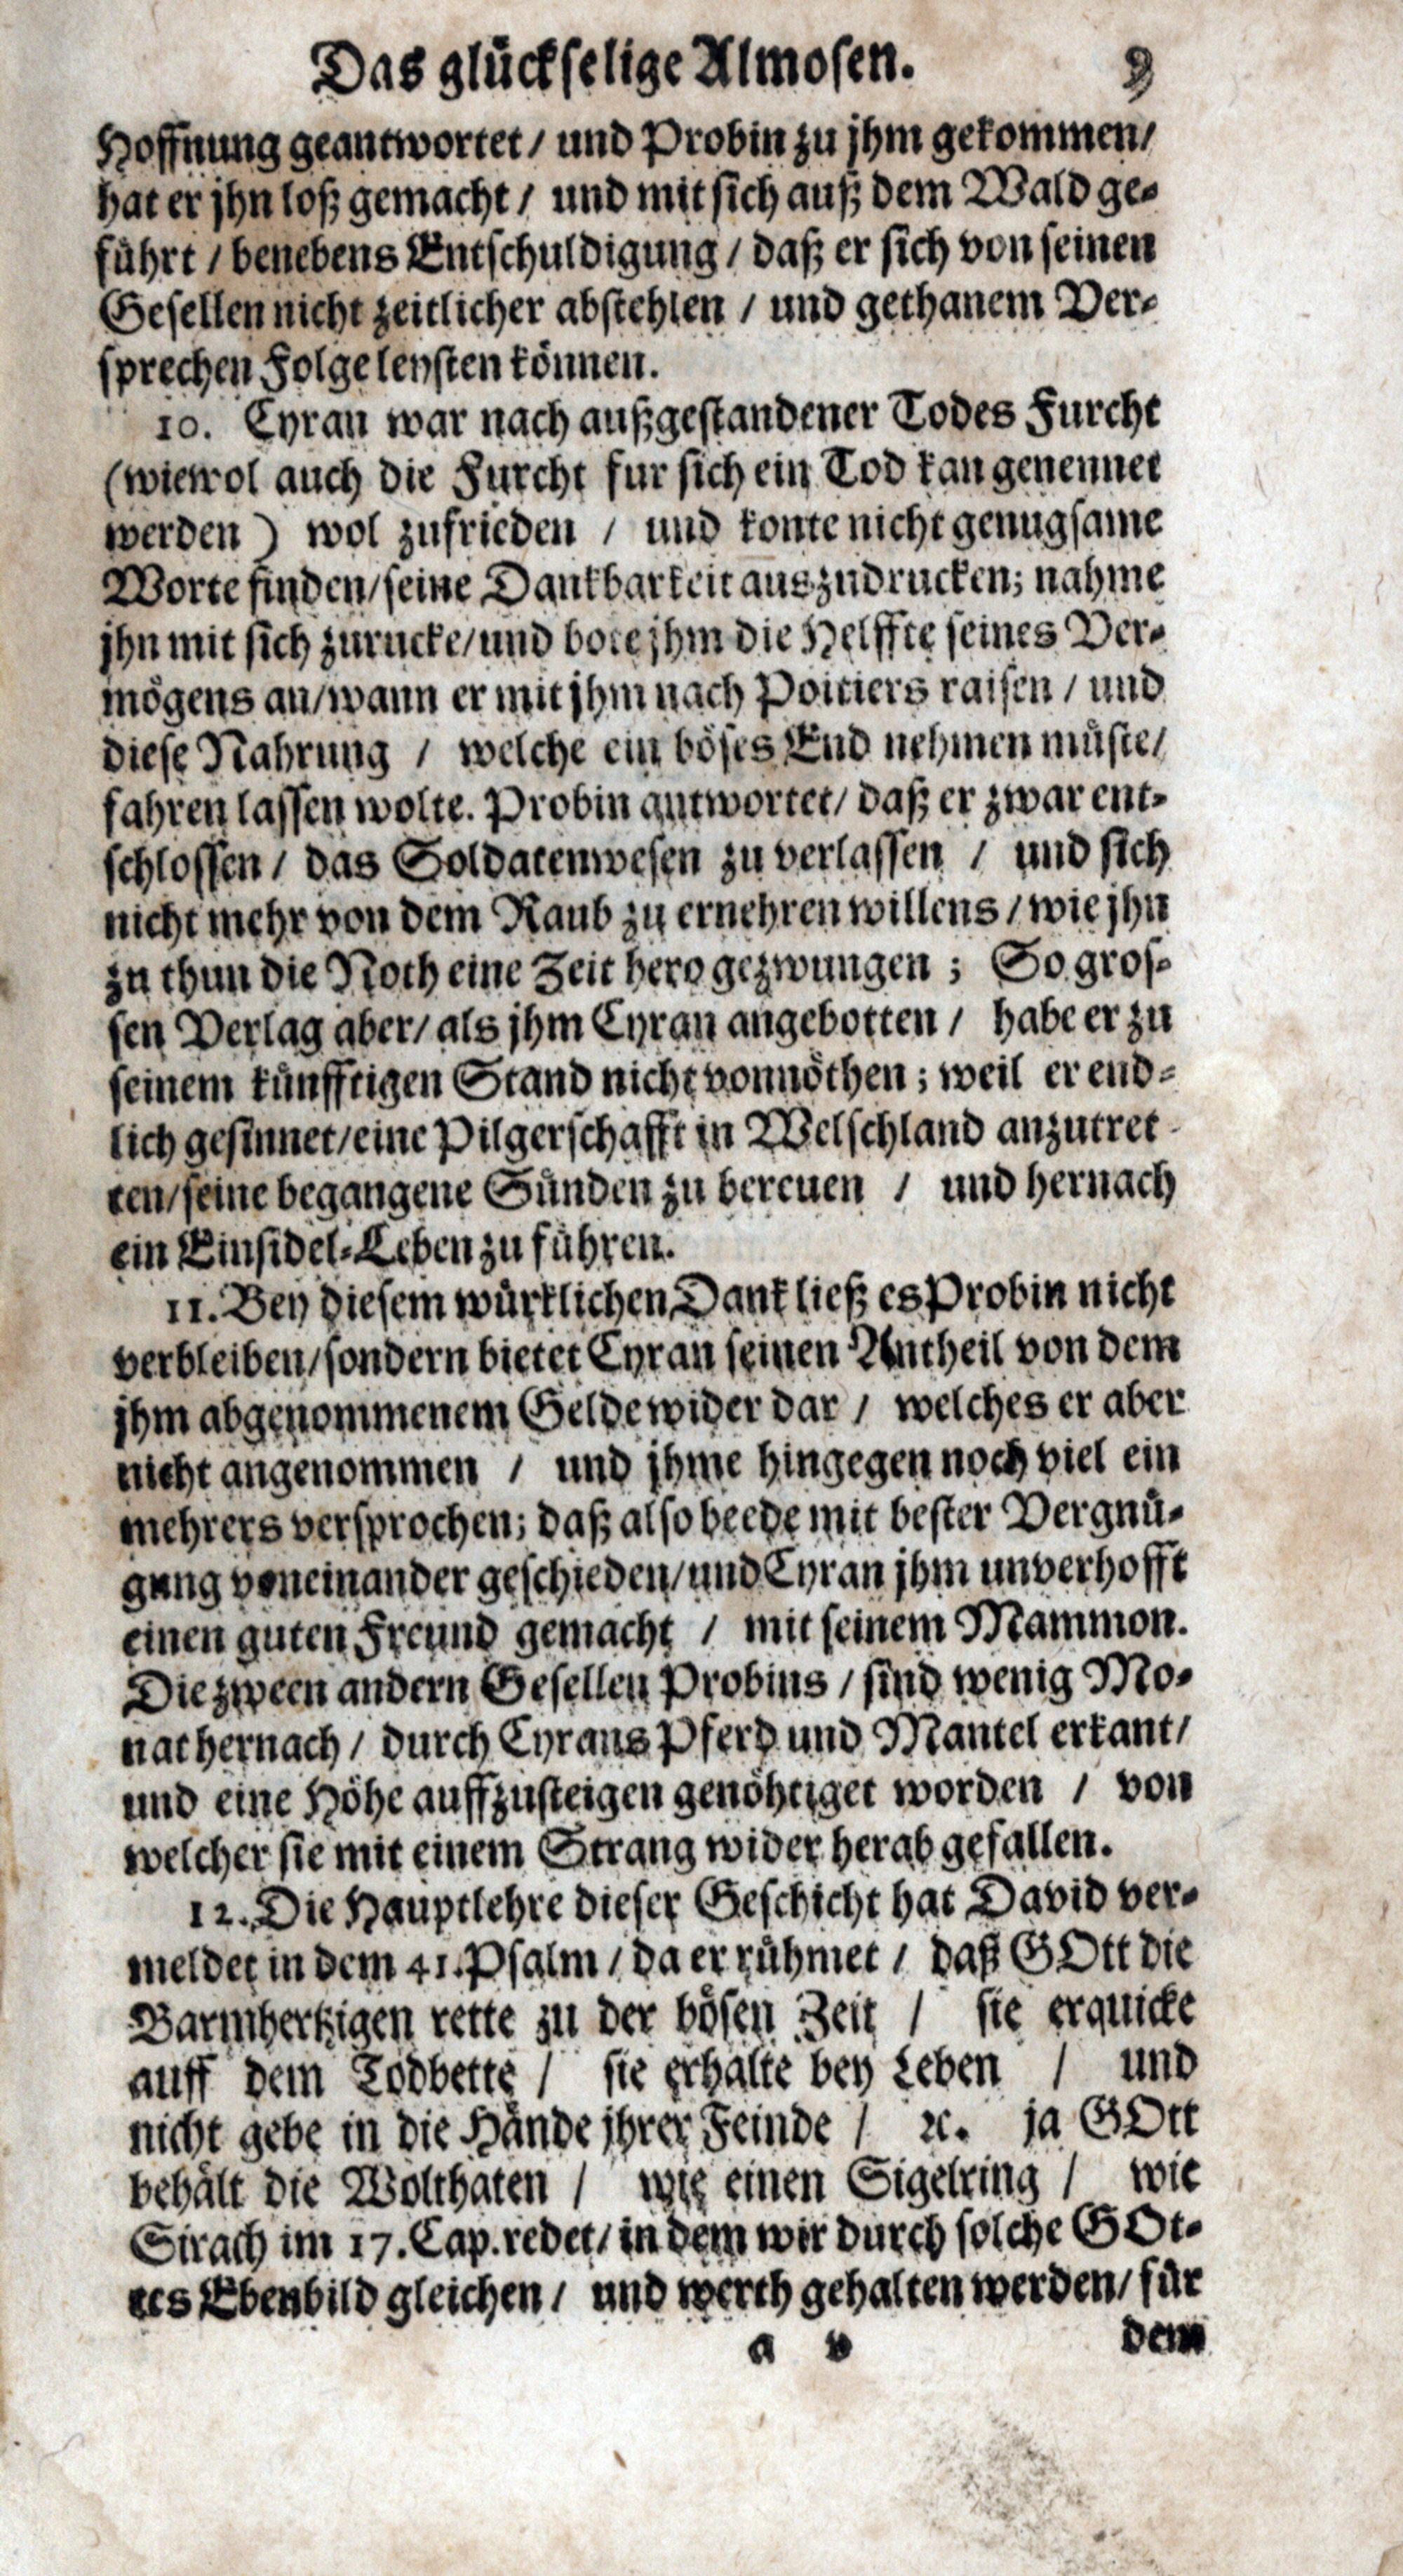 Das glückselige Almosen. 9
Hoffnung geantwortet / und Probin zu jhm gekommen /
hat er jhn loß gemacht / und mit sich auß dem Wald ge-
führt / benebens Entschuldigung / daß er sich von seinen
Gesellen nicht zeitlicher abstehlen / und gethanem Ver-
sprechen Folge leysten können.
10. Cyran war nach außgestandener Todes Furcht
(wiewol auch die Furcht fur sich ein Tod kan genennet
werden) wol zufrieden / und konte nicht genugsame
Worte finden / seine Dankbarkeit auszudrucken; nahme
jhn mit sich zurucke / und bote jhm die Helffte seines Ver-
mögens an / wann er mit jhm nach Poitiers raisen / und
diese Nahrung / welche ein böses End nehmen müste /
fahren lassen wolte. Probin antwortet / daß er zwar ent-
schlossen / das Soldatenwesen zu verlassen / und sich
nicht mehr von dem Raub zu ernehren willens / wie jhn
zu thun die Noth eine Zeit hero gezwungen; So gros-
sen Verlag aber / als jhm Cyran angebotten / habe er zu
seinem künfftigen Stand nicht vonnöthen; weil er end-
lich gesinnet / eine Pilgerschafft in Welschland anzutret-
ten / seine begangene Sünden zu bereuen / und hernach
ein Einsidel-Leben zu führen.
11. Bey diesem würklichen Dank ließ es Probin nicht
verbleiben / sondern bietet Cyran seinen Antheil von dem
jhm abgenommenem Gelde wider dar / welches er aber
nicht angenommen / und jhme hingegen noch viel ein
mehrers versprochen; daß also beede mit bester Vergnü-
gung voneinander geschieden / und Cyran jhm unverhofft
einen guten Freund gemacht / mit seinem Mammon.
Die zween andern Gesellen Probins / sind wenig Mo-
nat hernach / durch Cyrans Pferd und Mantel erkant /
und eine Höhe auffzusteigen genöhtiget worden / von
welcher sie mit einem Strang wider herab gefallen.
12. Die Hauptlehre dieser Geschicht hat David ver-
meldet in dem 41. Psalm / da er rühmet / daß GOtt die
Barmhertzigen rette zu der bösen Zeit / sie erquicke
auff dem Todbette / sie erhalte bey Leben / und
nicht gebe in die Hände jhrer Feinde / ꝛc. ja GOtt
behält die Wolthaten / wie einen Sigelring / wie
Sirach im 17. Cap. redet / in dem wir durch solche GOt-
tes Ebenbild gleichen / und werth gehalten werden / für
a v dem